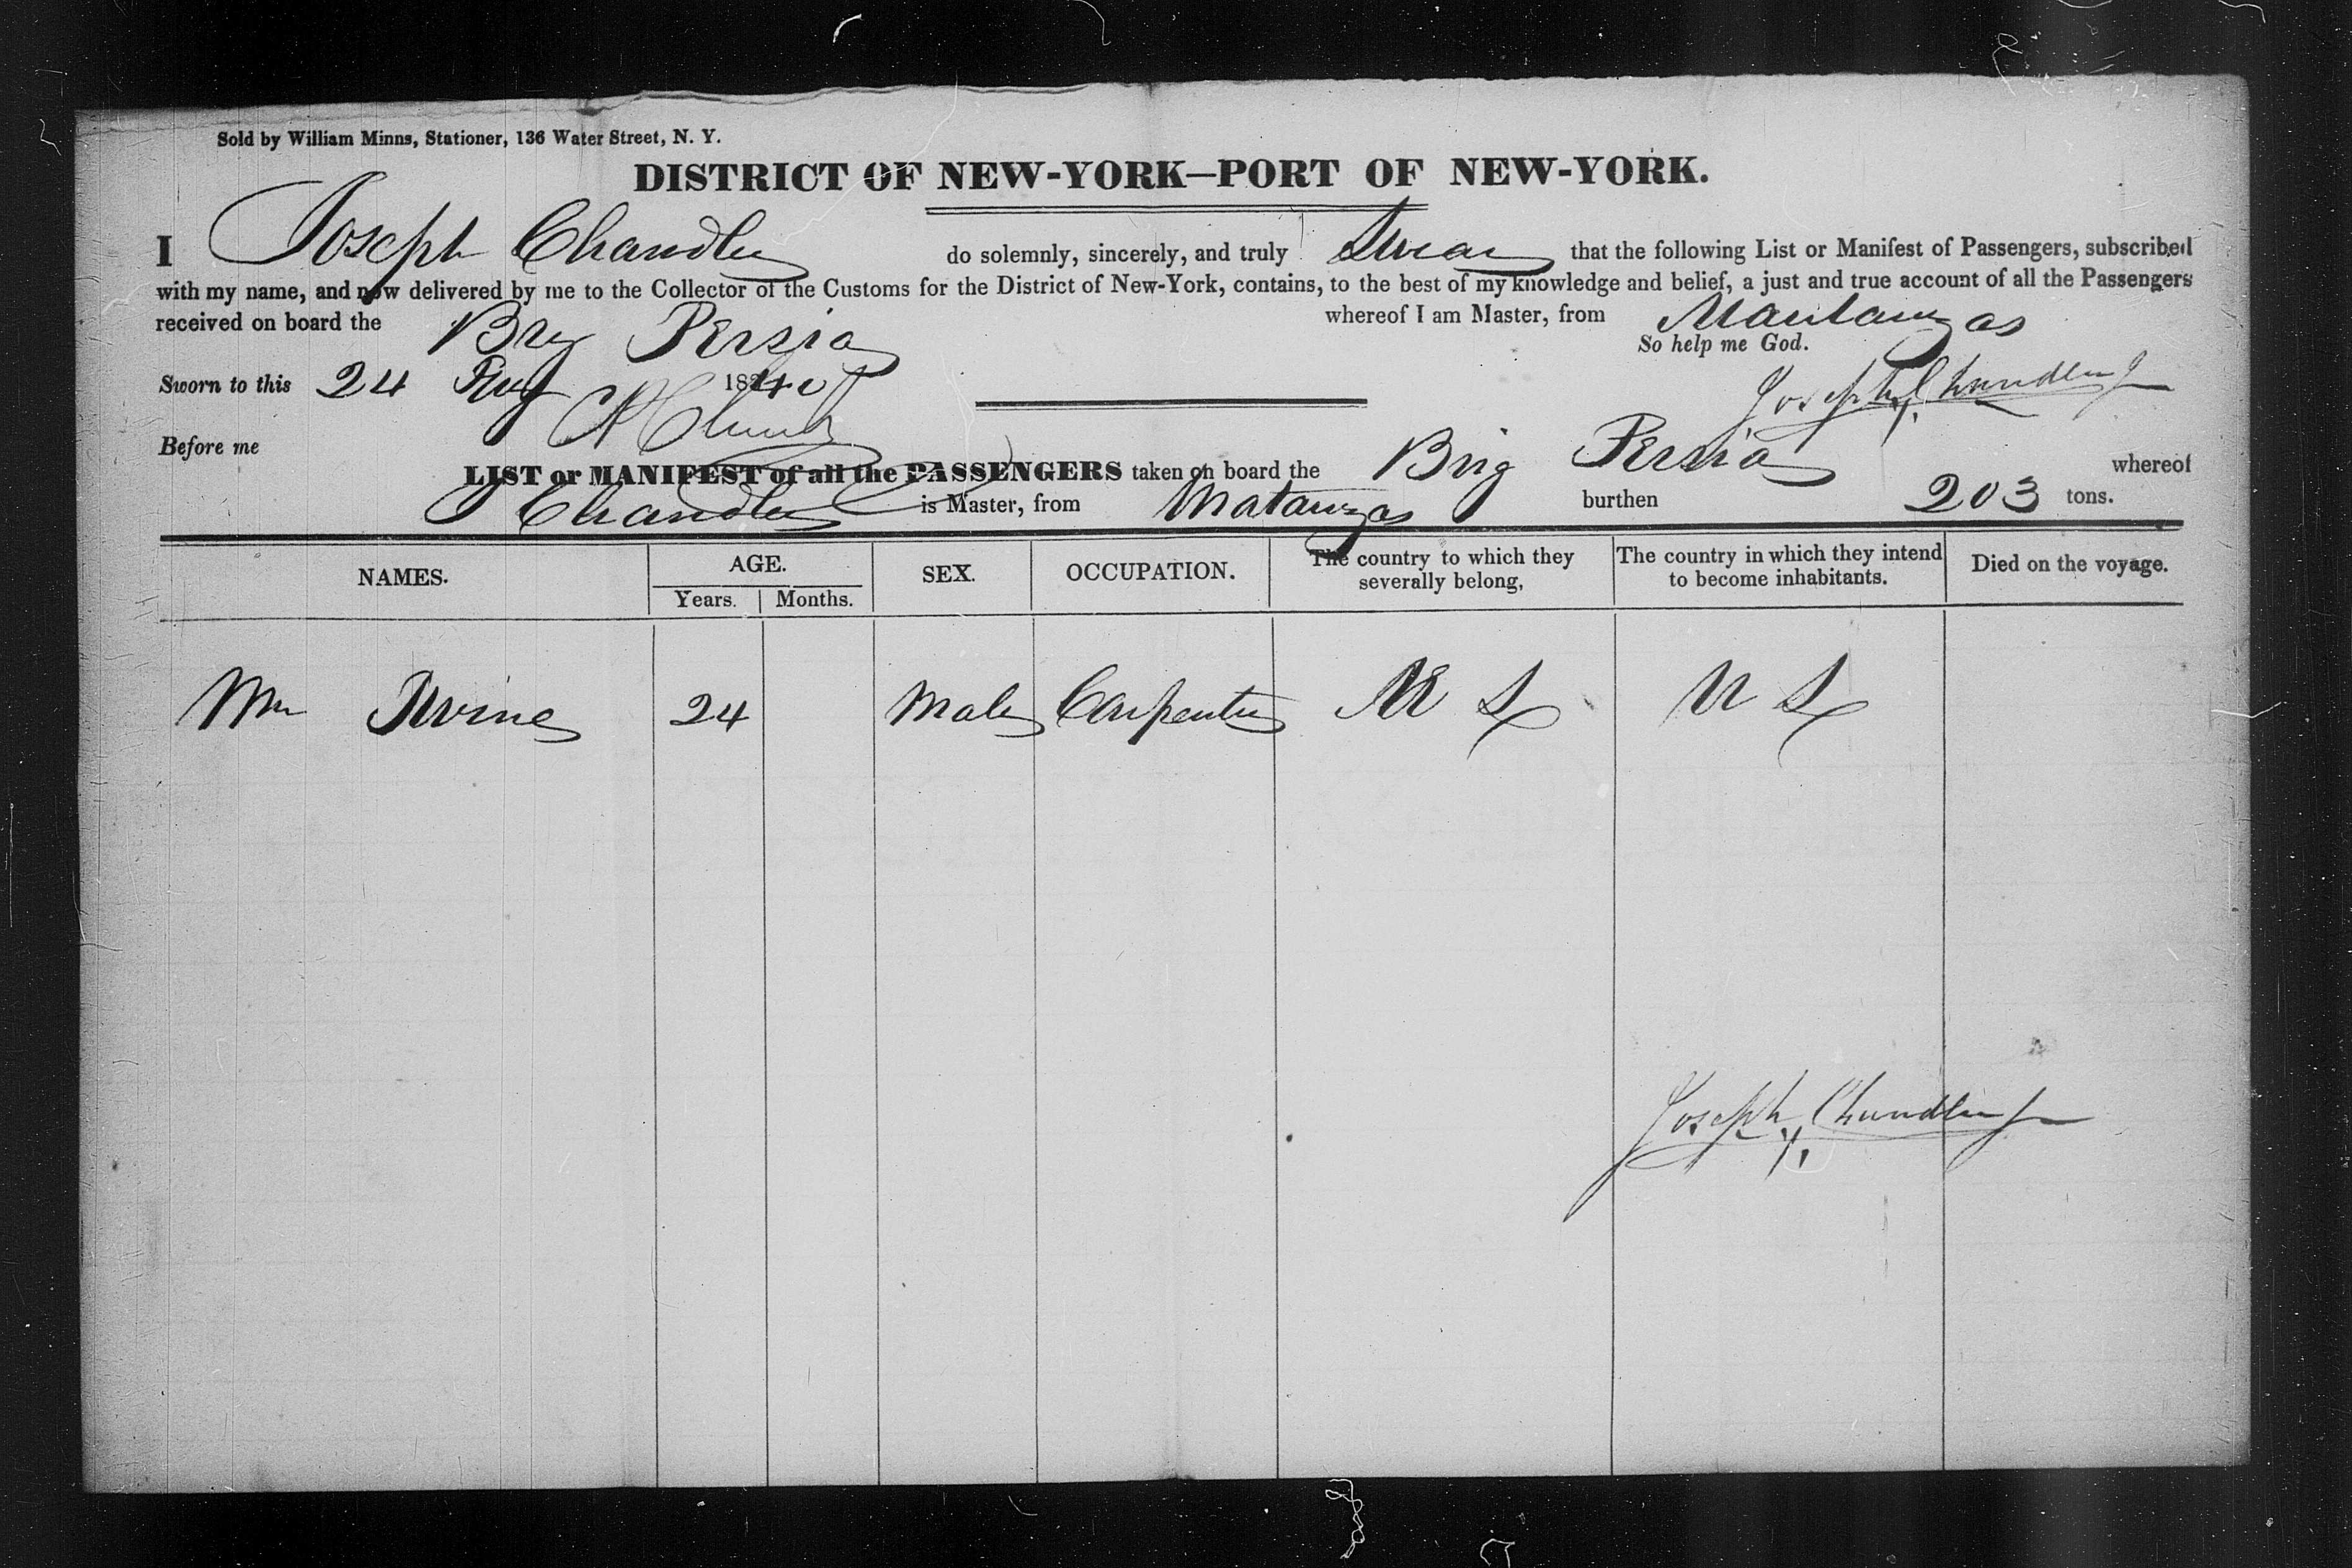 Sold by William Minns, Stationer, 136 Water Street, N. Y.
DISTRICT OF NEW-YORK—PORT OF NEW-YORK.
I Joseph Chandler do solemnly, sincerely, and truly Swear that the following List or Manifest of Passengers, subscribed
with my name, and now delivered by me to the Collector of the Customs for the District of New-York, contains, to the best of my knowledge and belief, a just and true account of all the Passengers
received on board the Brig Persia whereof I am Master, from Mantanzas
So help me God.
Sworn to this 24 Aug 1840 Joseph Chandler
Before me
LIST or MANIFEST of all the PASSENGERS taken on board the Brig Persia whereof
Chandler is Master, from Matanzas burthen 203 tons.
NAMES. AGE. Years. Months. SEX. OCCUPATION. The country to which they severally belong, The country in which they intend to become inhabitants. Died on the voyage.
Mr Irvine 24 Male Carpenter U S U S
Joseph Chandler